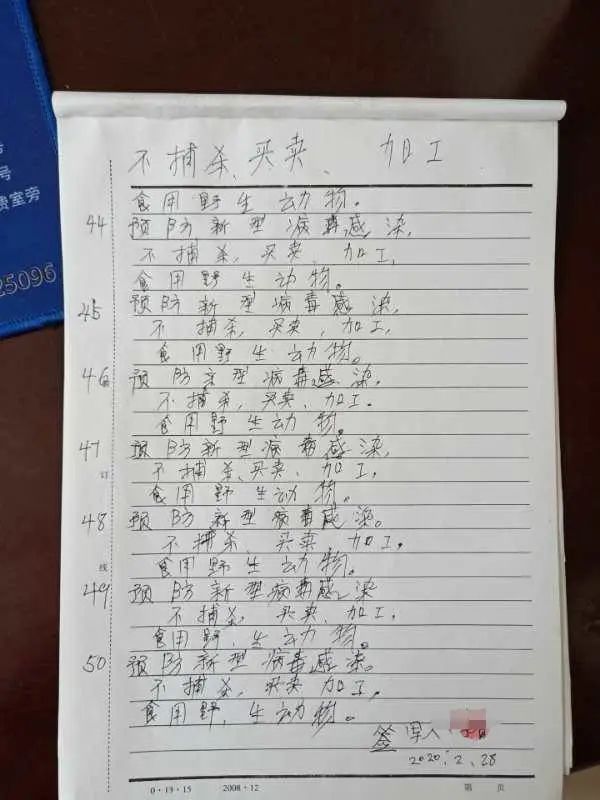 号
费室旁
25096
不捕杀、买卖、 加工
食用野生动物。
44 预防新型病毒感染,
不捕杀,买卖、加工,
食用野生动物。
45 预防新型病毒感染,
不捕杀,买卖,加工,
食用野生动物。
46 预防新型病毒感染,
不捕杀,买卖、加工.
食用野生动物。
47 预防新型病毒感染,
不捕杀、买卖、加工,
订
食用野生动物。
48 预防新型病毒感染。
不捕杀、买卖、加工,
线
食用野生动物。
49 预防新型病毒感染
不捕杀、买卖、加工,
食用野、生动物。
50 预防新型病毒感染。
不捕杀,买卖加工,
食用野、生动物。
签写人
2020.2.28
0·19·15 2008·12 第 页